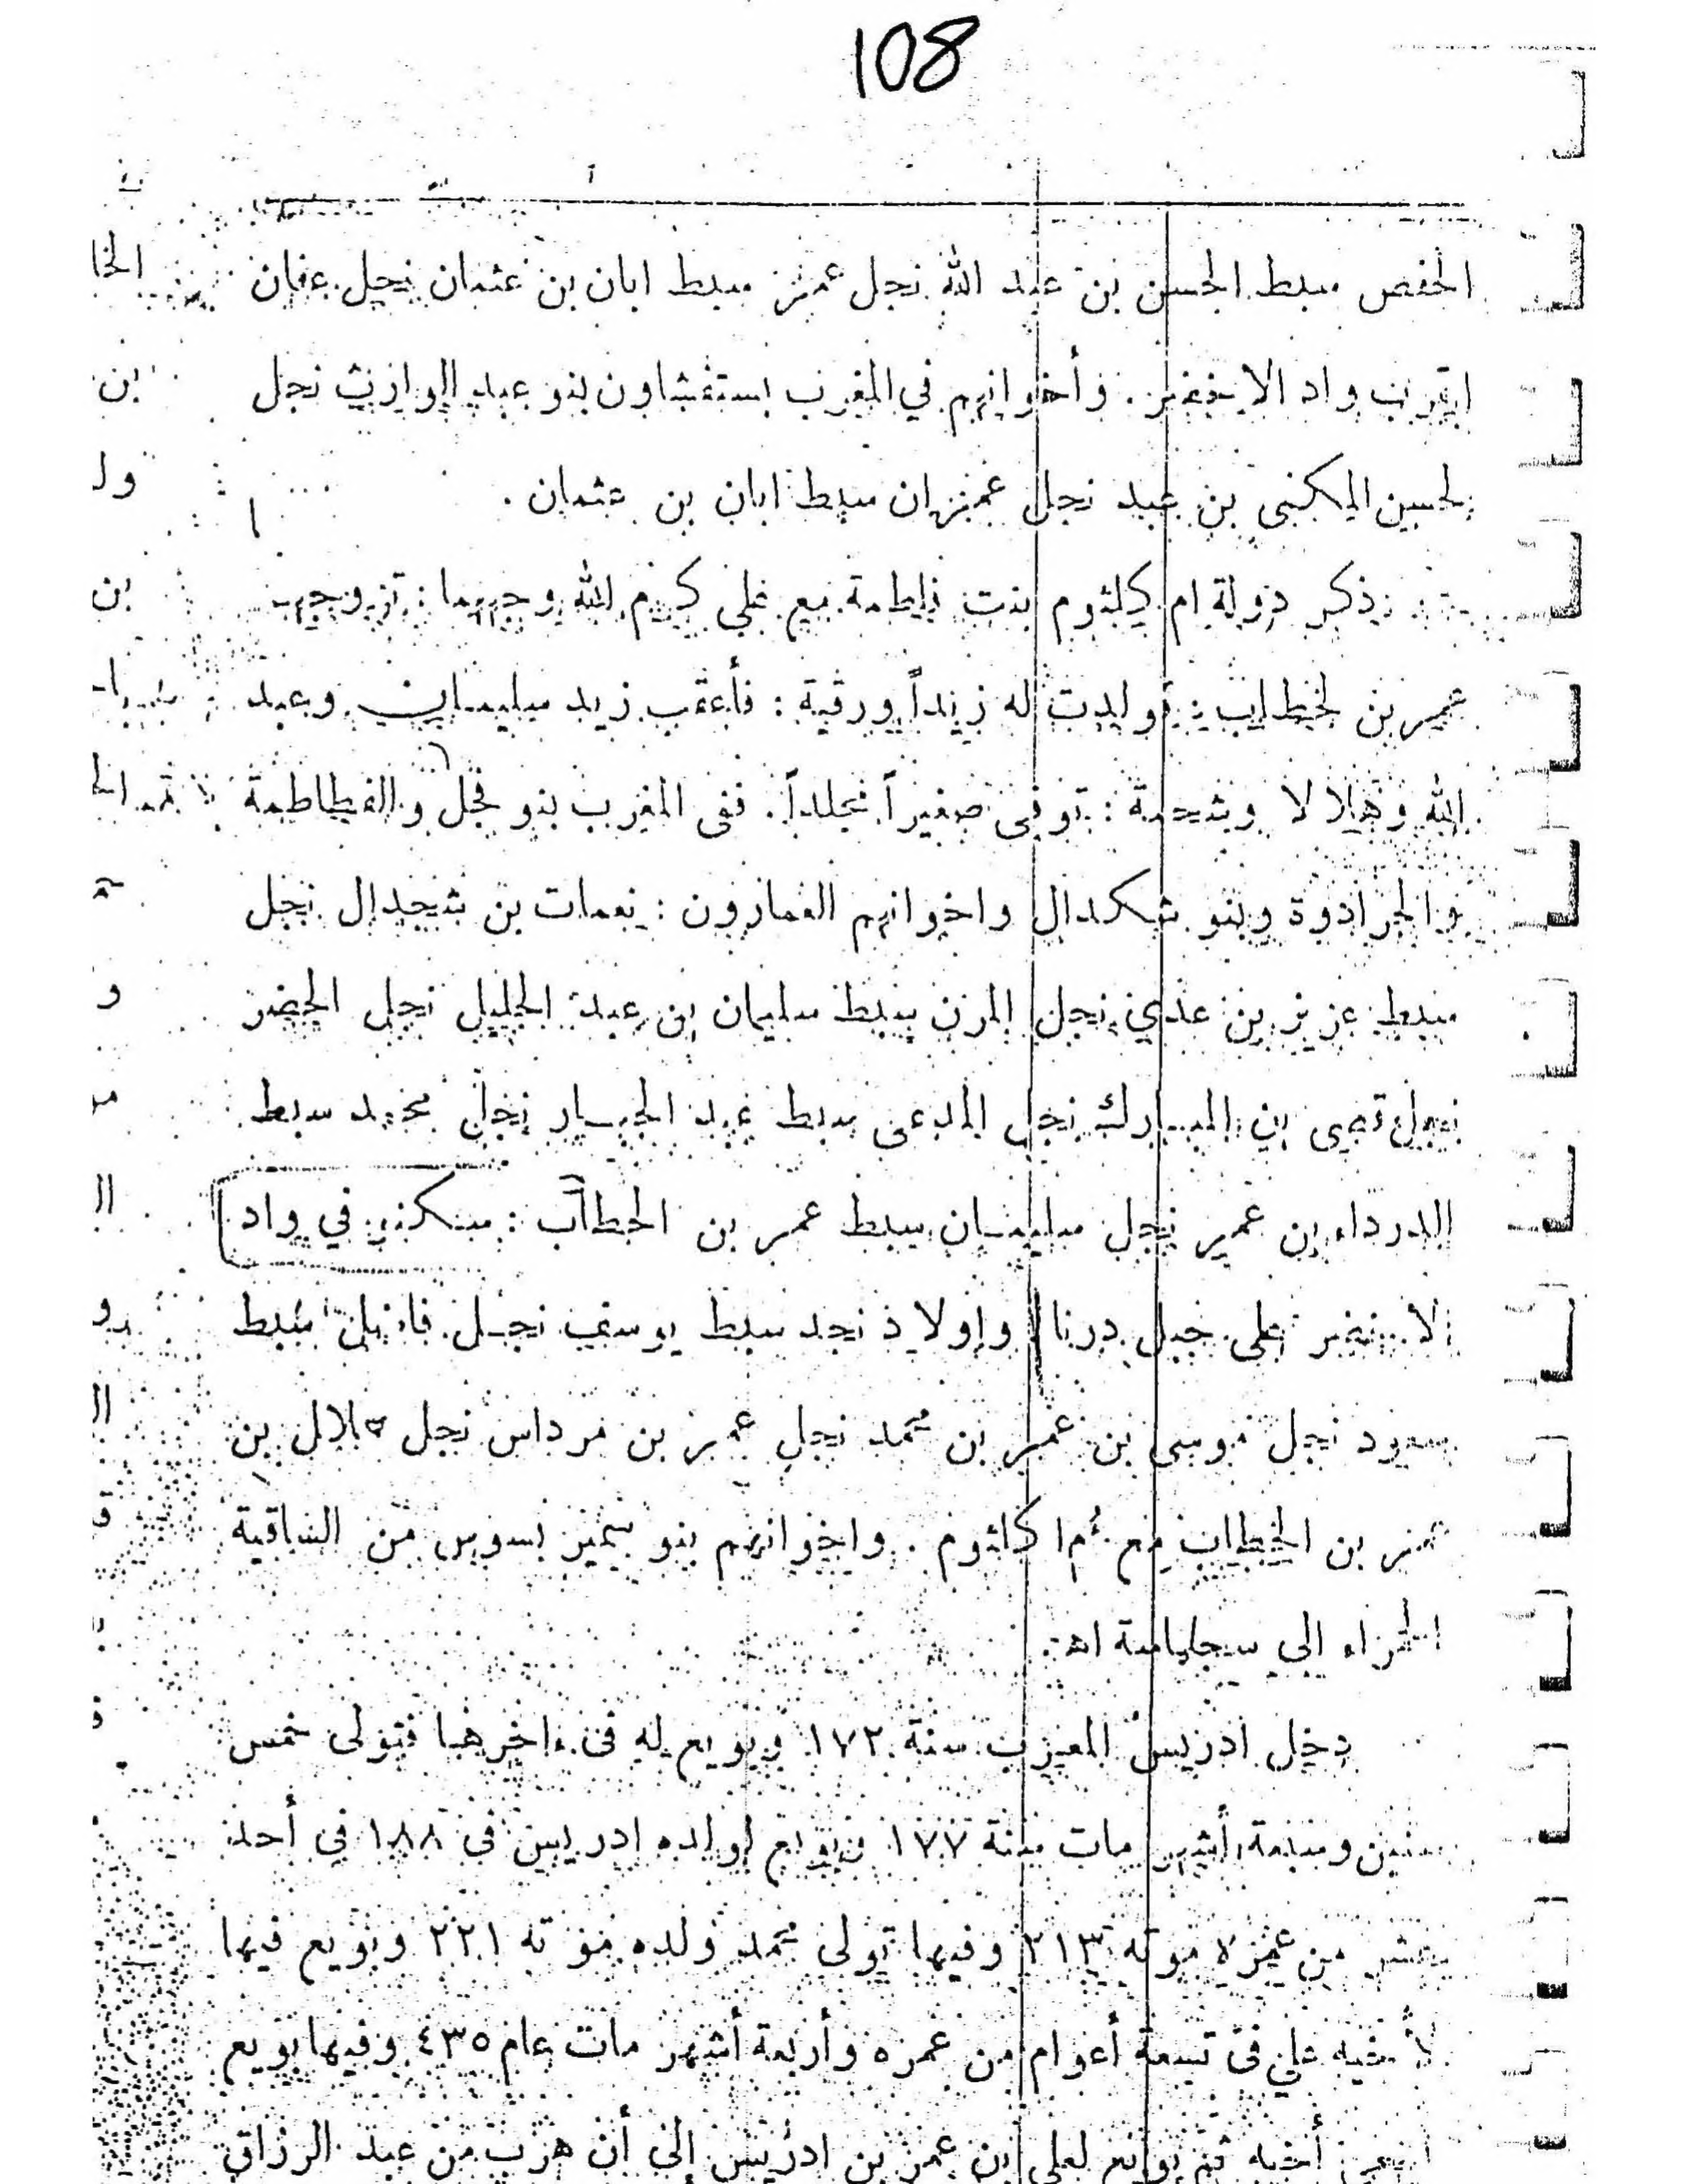 108
الحفص سبط الحسن بن عبد الله نجل عمر سبط ابان بن عثمان نجل عفان
بقرب واد الاخضر . وأخوانهم في المغرب بستفشاون بنو عبد الوارث نجل
لحسين المكنى بن عبد نجل عمران سبط ابان بن عثمان .
ذكر دولة ام كلثوم بنت فاطمة مع علي كرم الله وجههما : تزوجها
عمر بن لخطاب : فولدت له زيداً ورقية : فأعقب زيد سليمان وعبد
الله وهلالا وشحمة : توفى صغيراً مخلداً . ففى المغرب بنو فجل والفطاطمة
والجرادوة وبنو شكدال واخوانهم الغمارون : نعمات بن شجدال نجل
سبط عزيز بن عدي نجل المزن سبط سليمان بن عبد الجليل نجل الخضر
نجل قصى بن المبارك نجل المدعى سبط عبد الجبار نجل محمد سبط
الدرداء بن عمير نجل سليمان سبط عمر بن الخطاب : سكنى في واد
الاخضر على جبل درنا واولاد نجد سبط يوسف نجل سبط
سعود نجل موسى بن عمر بن محمد نجل عمر بن مرداس نجل هلال بن
عمر بن الخطاب مع أم كلثوم . واخوانهم بنو بسوس من الساقية
الحمراء الى سجلماسة اه .
دخل ادريس المغرب سنة ١٧٢ وبويع له فى ءاخرها فتولى خمس
سنين وسبعة أشهر مات سنة ١٧٧ وبويع لولده ادريس فى ١٨٨ فى أحد
عشر من عمره موته ٢١٣ وفيها تولى محمد ولده موته ٢٢١ وبويع فيها
لأخيه علي فى تسعة أعوام من عمره وأربعة أشهر مات عام ٤٣٥ وفيها بويع
أخيه ثم بويع لعلي بن عمر بن ادريس الى أن هرب من عبد الرزاق